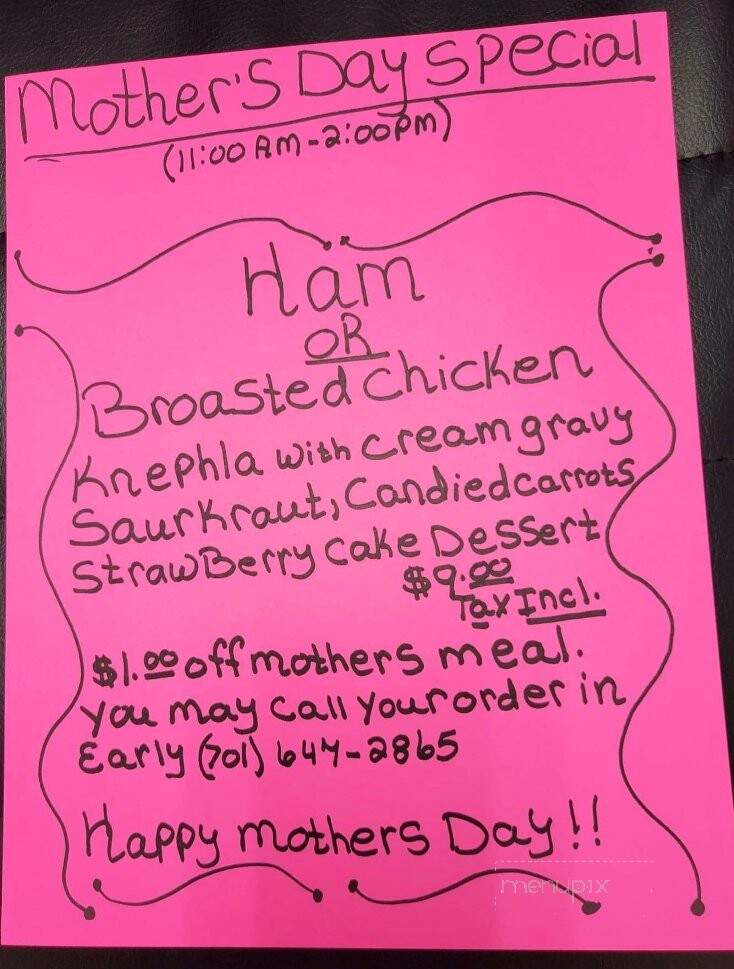 Mother's Day Special
(11:00 AM-2:00pm)
Ham
OR
Broasted Chicken
Knephla with cream gravy
Saurkraut, Candied carrots
StrawBerry Cake Dessert
$9.00
Tax Incl.
$1.00 off mothers meal.
You may call your order in
Early (701) 647-2865
Happy mothers Day!!
menupix